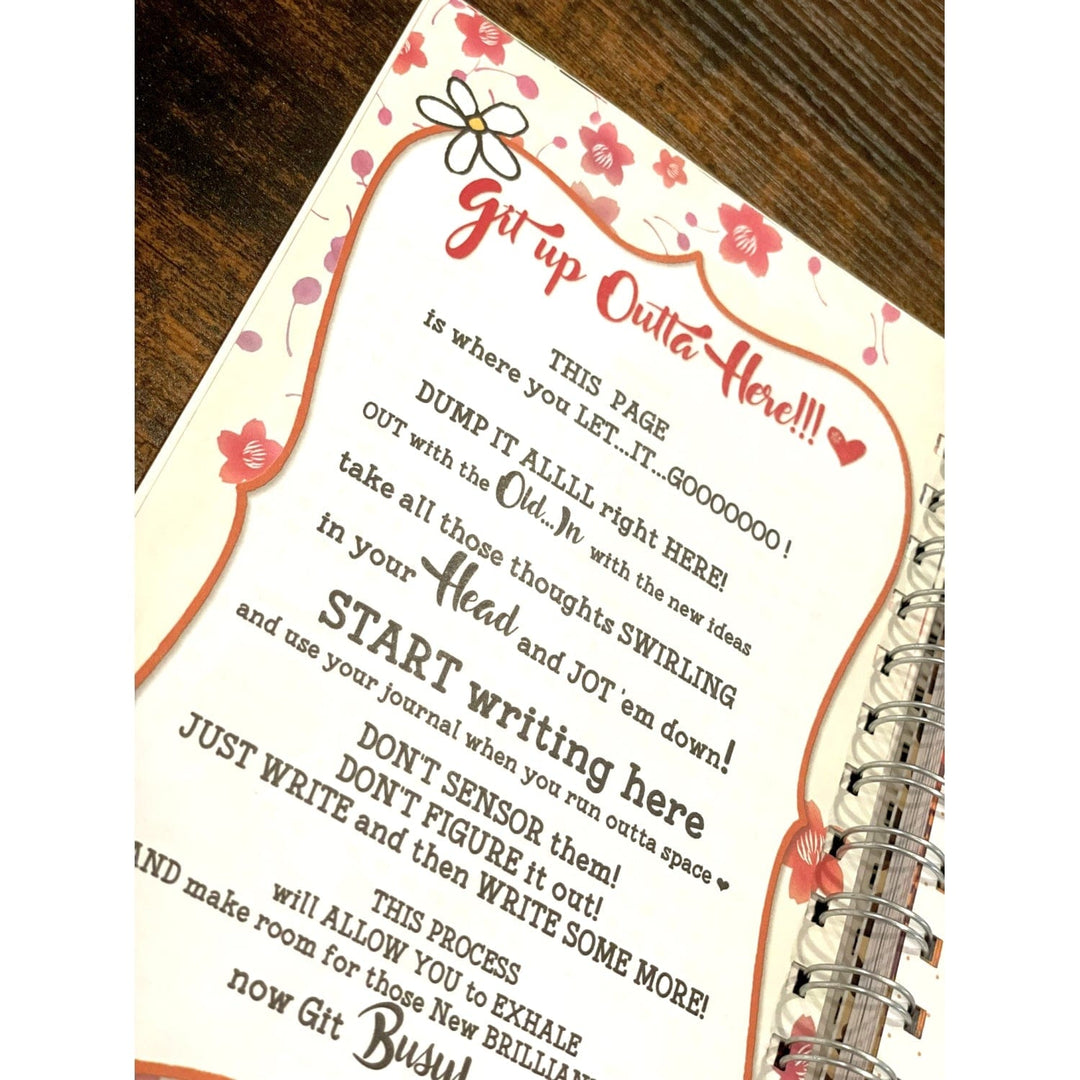 Git up Outta Here!!!
THIS PAGE
is where you LET...IT...GOOOOOOO!
DUMP IT ALLLL right HERE!
OUT with the Old...In with the new ideas
take all those thoughts SWIRLING
in your Head and JOT 'em down!
START writing here
and use your journal when you run outta space ❤
DON'T SENSOR them!
DON'T FIGURE it out!
JUST WRITE and then WRITE SOME MORE!
THIS PROCESS
will ALLOW YOU to EXHALE
AND make room for those New
now Git Busy!